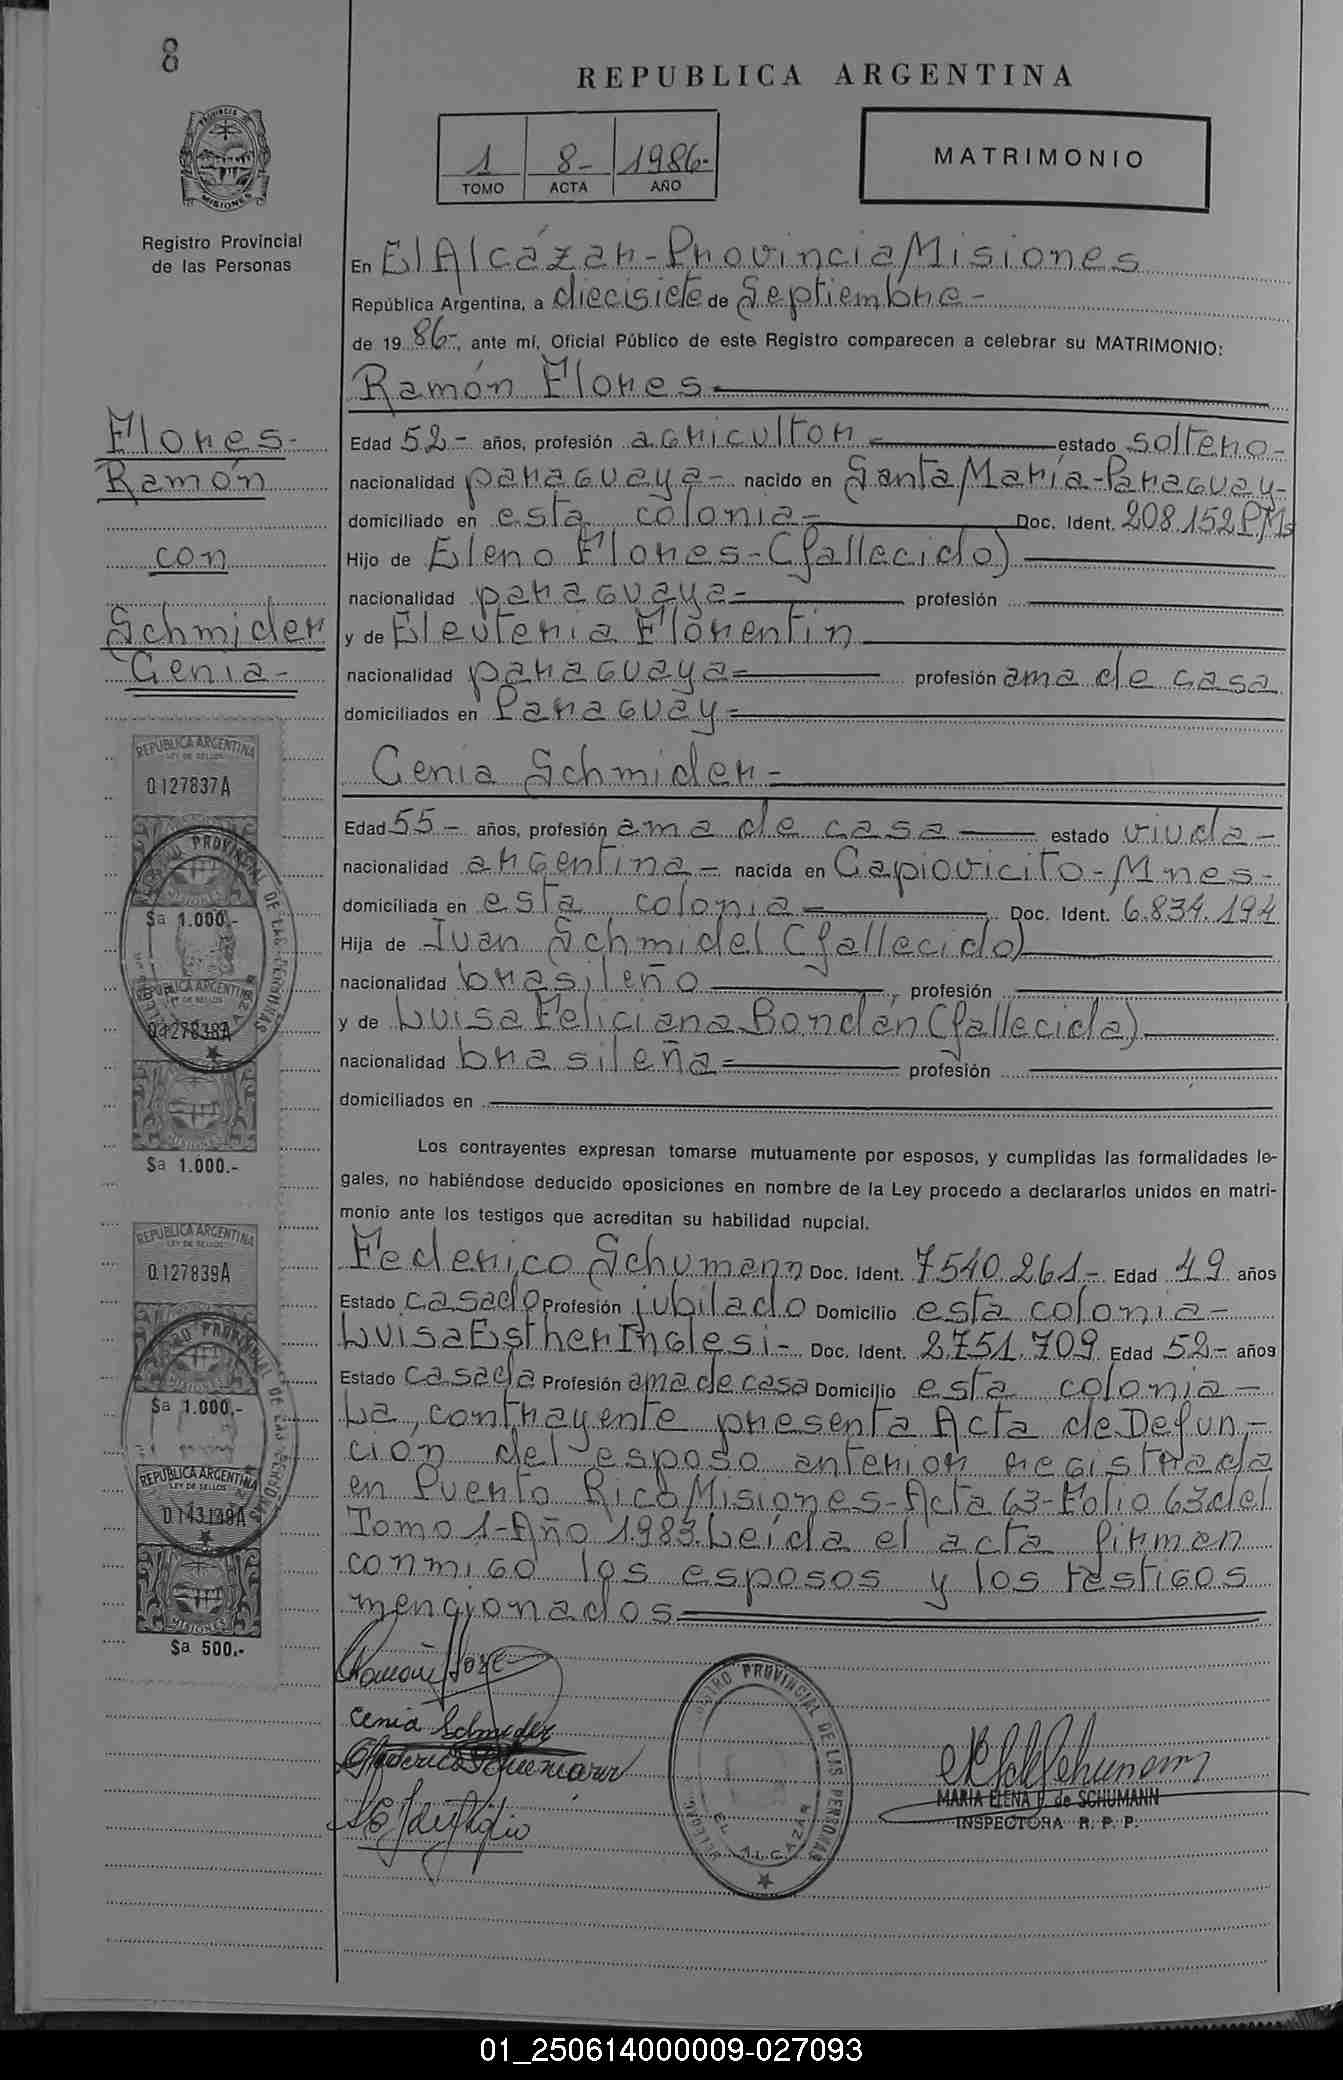 8
REPUBLICA ARGENTINA
1 8- 1986-
TOMO ACTA AÑO
MATRIMONIO
PROVINCIA DE
MISIONES
Registro Provincial
de las Personas
En El Alcázar - Provincia Misiones
República Argentina, a diecisiete de Septiembre -
de 19 86-, ante mí, Oficial Público de este Registro comparecen a celebrar su MATRIMONIO:
Ramón Flores
Flores-
Ramón
con
Schmider
Cenia-
Edad 52- años, profesión agricultor - estado soltero-
nacionalidad paraguaya- nacido en Santa María-Paraguay-
domiciliado en esta colonia- Doc. Ident. 208.152 P/Ms
Hijo de Eleno Flores-(fallecido)
nacionalidad paraguaya- profesión
y de Eleuteria Florentín
nacionalidad paraguaya- profesión ama de casa
domiciliados en Paraguay-
Cenia Schmider-
Edad 55- años, profesión ama de casa estado viuda-
nacionalidad argentina- nacida en Capiovicito-Mnes-
domiciliada en esta colonia- Doc. Ident. 6.834.194
Hija de Juan Schmidel (fallecido)
nacionalidad brasileño , profesión
y de Luisa Feliciana Bondan (fallecida)
nacionalidad brasileña- profesión
domiciliados en
Los contrayentes expresan tomarse mutuamente por esposos, y cumplidas las formalidades le-
gales, no habiéndose deducido oposiciones en nombre de la Ley procedo a declararlos unidos en matri-
monio ante los testigos que acreditan su habilidad nupcial.
Federico Schumann Doc. Ident. 7540.261- Edad 49 años
Estado casado Profesión jubilado Domicilio esta colonia-
Luisa Esther Inglesi- Doc. Ident. 2.751.709 Edad 52- años
Estado casada Profesión ama de casa Domicilio esta colonia-
La contrayente presenta Acta de Defun-
ción del esposo anterior registrada
en Puerto Rico Misiones-Acta 63-Folio 63 del
Tomo 1-Año 1983. Leída el acta firman
conmigo los esposos y los testigos
mencionados
REPUBLICA ARGENTINA
LEY DE SELLOS
0.127837A
MISIONES
$a 1.000.-
REPUBLICA ARGENTINA
LEY DE SELLOS
0.127838A
MISIONES
$a 1.000.-
REPUBLICA ARGENTINA
LEY DE SELLOS
0.127839A
$a 1.000.-
REPUBLICA ARGENTINA
LEY DE SELLOS
0143.149A
MISIONES
$a 500.-
Cenia Schmider
Federico Schumann
PROVINCIAL DE LAS PERSONAS
EL ALCAZAR
MARIA ELENA P. de SCHUMANN
INSPECTORA R. P. P.
01_250614000009-027093